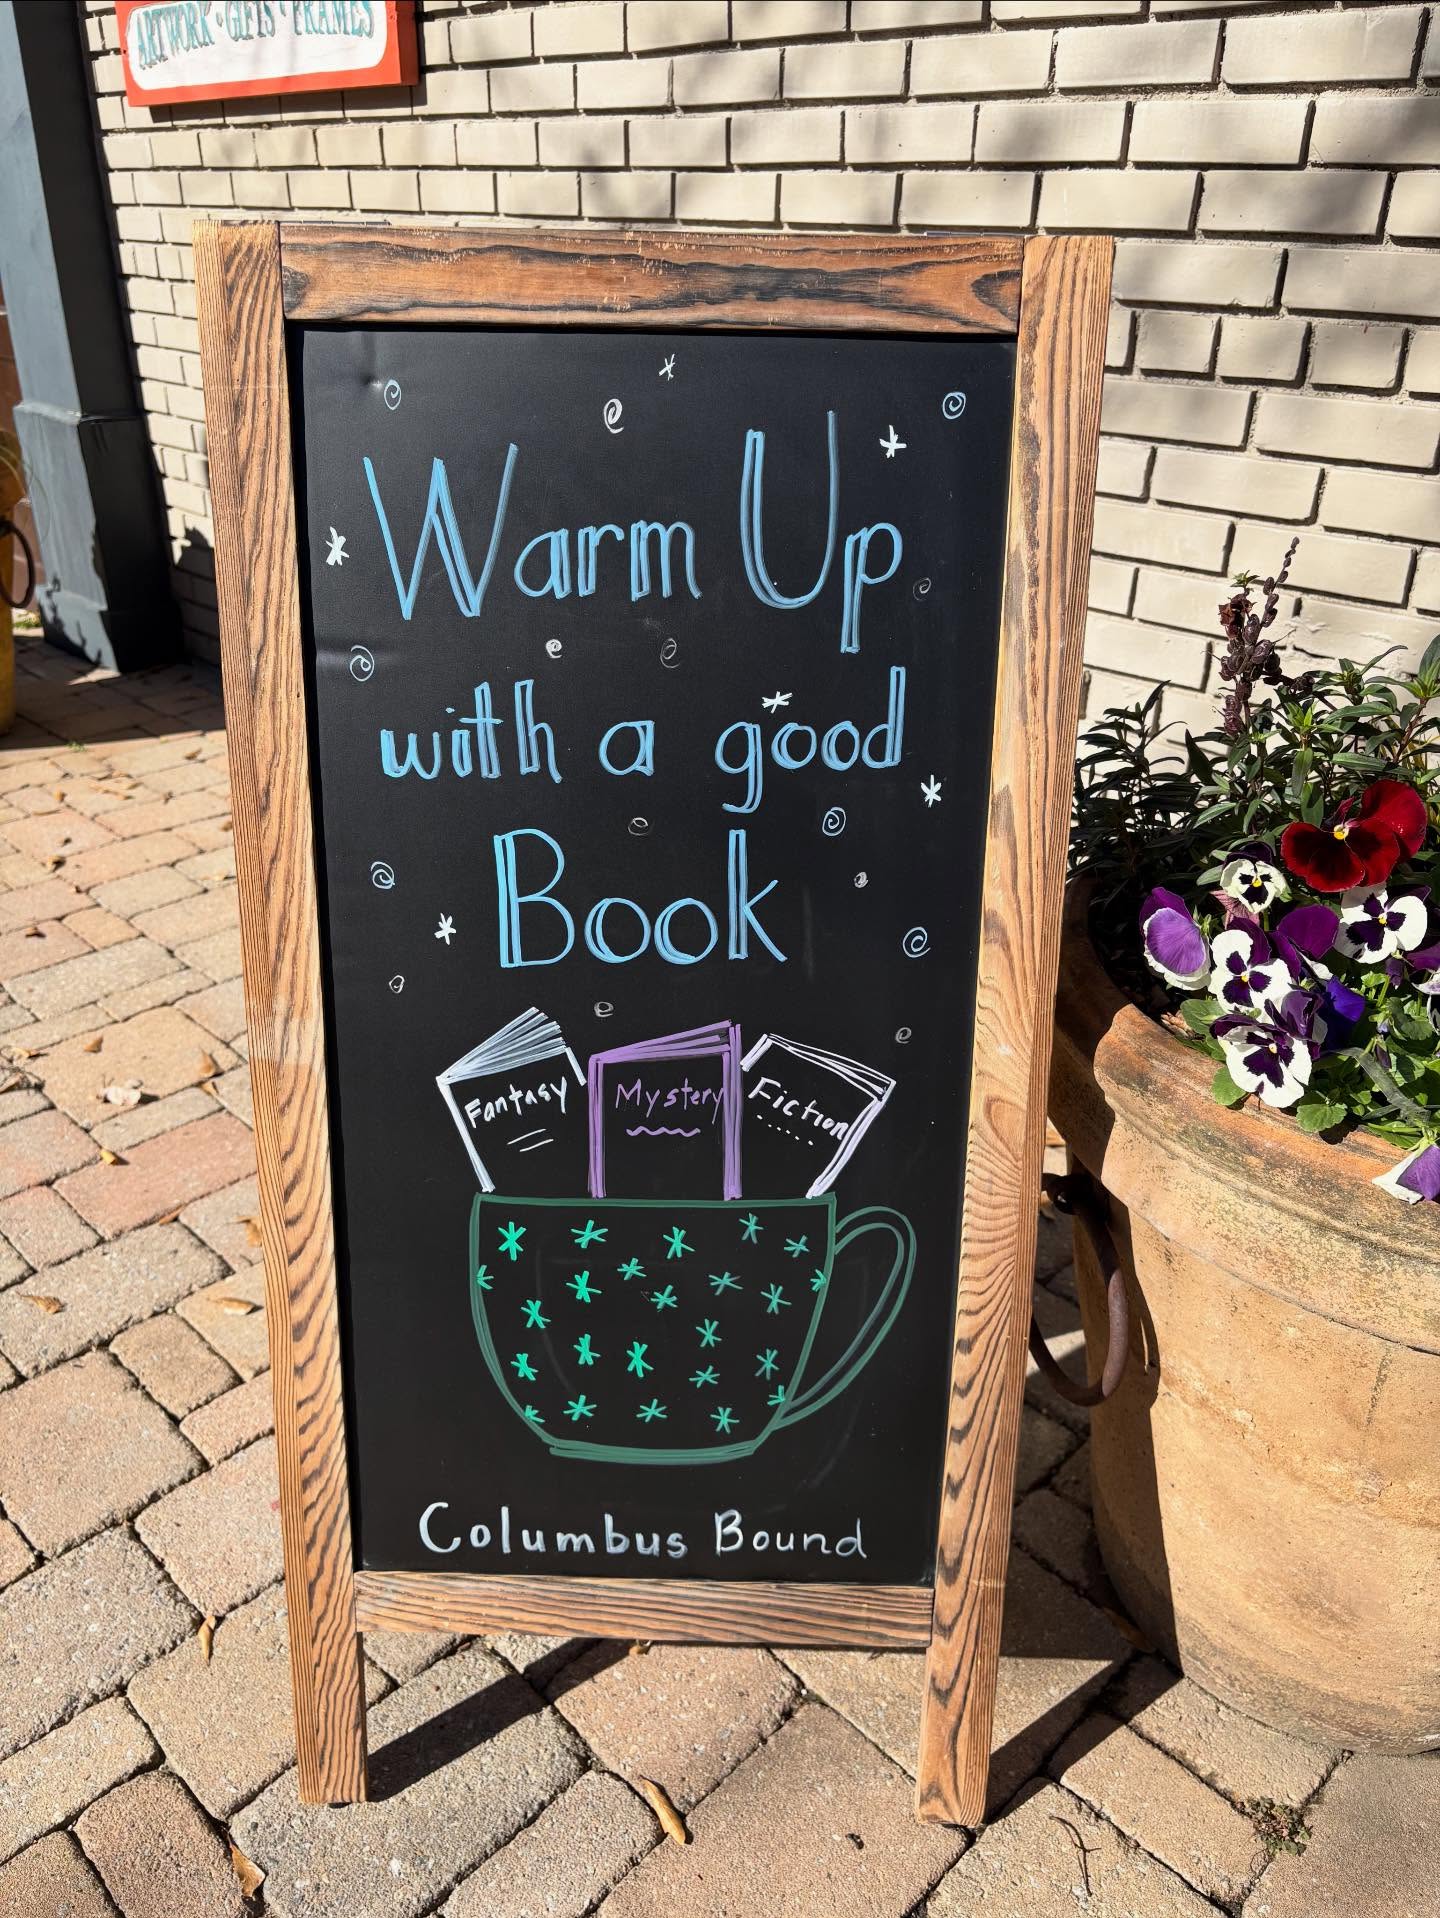 ARTWORK · GIFTS · FRAMES
Warm Up
with a good
Book
Fantasy
Mystery
Fiction
Columbus Bound